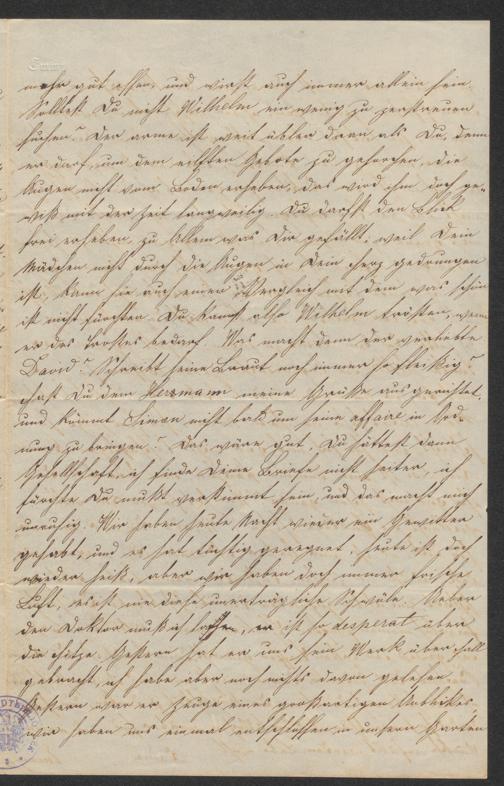 mehr gut essen, und wirst auch immer allein sein.
Solltest Du nicht Wilhelm ein wenig zu zerstreuen
suchen? Der arme ist weit übler dran als Du, denn
er darf, um dem eilften Gebote zu gehorchen, die
Augen nicht vom Boden erheben, das wird ihm doch ge-
wiß mit der Zeit langweilig. Du darfst den Blick
frei erheben, zu Allem was Dir gefällt, weil Dein
Mädchen nicht durch die Augen in Dein Herz gedrungen
ist, kann sie auch einen Vergleich mit dem was schön
ist nicht fürchten. Du kannst also Wilhelm trösten, wenn
er des Trostes bedarf. Was macht denn der verliebte
David? Schreibt seine Braut noch immer so fleißig?
Hast Du dem Herzmann meine Grüße ausgerichtet,
und kömmt Simon nicht bald um seine affaire in Ord-
nung zu bringen? Das wäre gut. Du hättest dann
Gesellschaft, ich finde Deine Briefe nicht heiter, ich
fürchte Du mußt verstimmt sein, und das macht mich
unruhig. Wir haben heute Nacht wieder ein Gewitter
gehabt, und es hat tüchtig geregnet, heute ist doch
wieder heiß, aber wir haben doch immer frische
Luft, es ist nie diese unerträgliche Schwüle. Ueber
den Doktor muß ich lachen, er ist so desperat über
die Hitze. Gestern hat er uns sein Werk über Hall
gebracht, ich habe aber noch nichts davon gelesen.
Gestern war er Zeuge eines großartigen Anblickes,
wir haben uns einmal entschlossen in unsern Garten